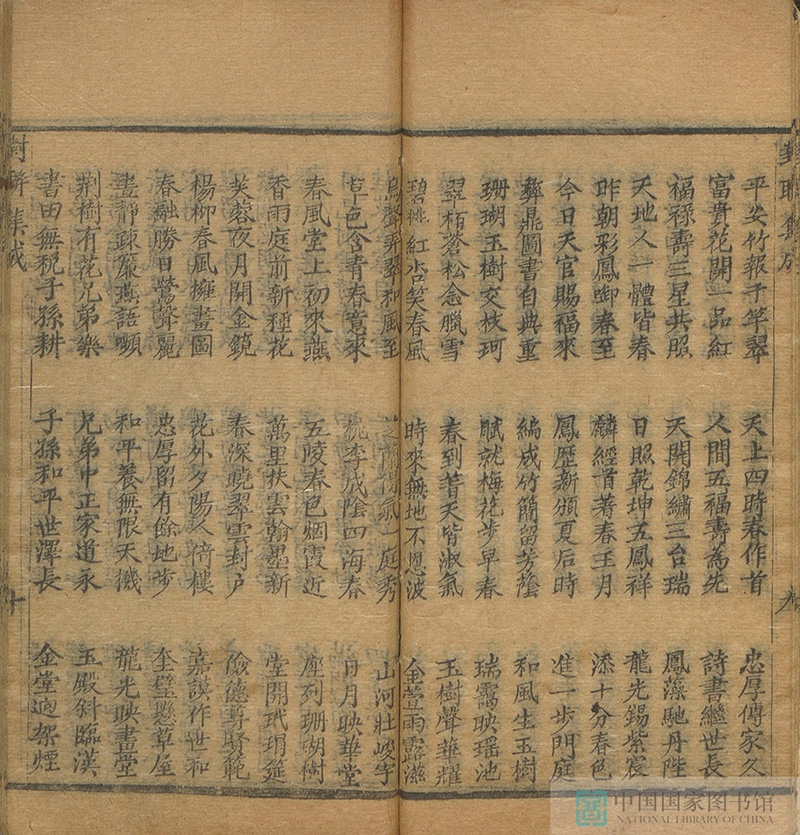 對聯集成
九
平安竹報千竿翠
富貴花開一品紅
福祿壽三星共照
天地人一體皆春
昨朝彩鳳啣春至
今日天官賜福來
彝鼎圖書自典重
珊瑚玉樹交枝珂
翠栢蒼松念臘雪
碧桃紅杏笑春風
天上四時春作首
人間五福壽為先
天開錦繡三台瑞
日照乾坤五鳳祥
麟經首著春王月
鳳歷新頒夏后時
編成竹簡留芳蔭
賦就梅花步早春
春到普天皆淑氣
時來無地不恩波
忠厚傳家久
詩書繼世長
鳳藻馳丹陛
龍光錫紫宸
添十分春色
進一步門庭
和風生玉樹
瑞靄映瑶池
玉樹聲華耀
金萱雨露滋
鳥聲弄翠和風至
草色含青春意來
春風堂上初來燕
香雨庭前新種花
芙蓉夜月開金鏡
楊柳春風擁畫圖
春融勝日鶯聲麗
晝靜疎簾燕語頻
荆樹有花兄弟樂
書田無稅子孫耕
芝蘭得氣一庭秀
桃李成陰四海春
五陵春色烟霞近
萬里扶雲翰墨新
春深曉翠雲封户
花外夕陽人倚樓
忠厚留有餘地步
和平養無限天機
兄弟中正家道永
子孫和平世澤長
山河壯峻宇
日月映華堂
座列珊瑚樹
堂開玳瑁筵
儉德尊賢範
嘉謨作世和
奎璧懸草屋
龍光映畫堂
玉殿斜臨漢
金堂逈架煙
對聯集成
十
中国国家图书馆
NATIONAL LIBRARY OF CHINA